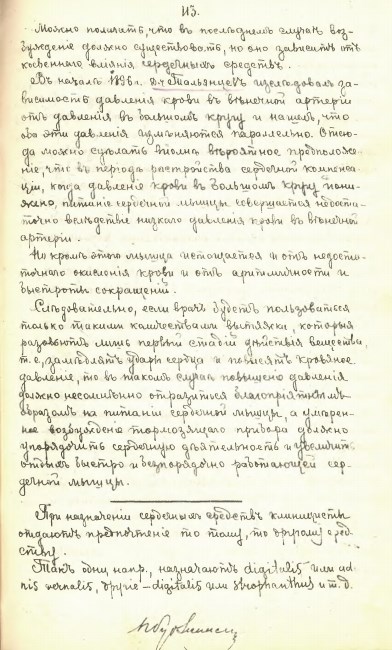 113.
Можно полагать, что въ послѣднемъ случаѣ воз-
бужденіе должно существовать, но оно зависитъ отъ
косвеннаго вліянія сердечныхъ средствъ.
Въ началѣ 1896 г. д-ръ Тальянцевъ изслѣдовалъ за-
висимость давленія крови въ вѣнечной артеріи
отъ давленія въ большомъ кругу и нашелъ, что
оба эти давленія измѣняются параллельно. Отсю-
да можно сдѣлать вполнѣ вѣроятное предположе-
ніе, что въ періодъ разстройства сердечной компенса-
ціи, когда давленіе крови въ большомъ кругу пони-
жено, питаніе сердечной мышцы совершается недоста-
точно вслѣдствіе низкаго давленія крови въ вѣнечной
артеріи.
Но кромѣ этого мышца истощается и отъ недоста-
точнаго окисленія крови и отъ аритмичности и
быстроты сокращеній.
Слѣдовательно, если врачъ будетъ пользоваться
только такими количествами вытяжки, которыя
разовьютъ лишь первый стадій дѣйствія вещества,
т. е., замедлятъ удары сердца и повысятъ кровяное
давленіе, то въ такомъ случаѣ повышено давленія
должно несомнѣнно отразиться благопріятнымъ
образомъ на питаніи сердечной мышцы, а умѣрен-
ное возбужденіе тормозящаго прибора должно
упорядочить сердечную дѣятельность и увеличить
отдыхъ быстро и безпорядочно работающей сер-
дечной мышцы.
При назначеніи сердечныхъ средствъ клиницисты
отдаютъ предпочтеніе то тому, то другому сред-
ству.
Такъ одни напр., назначаютъ digitalis или ado-
nis vernalis, другіе - digitalis или strophanthus и т. д.